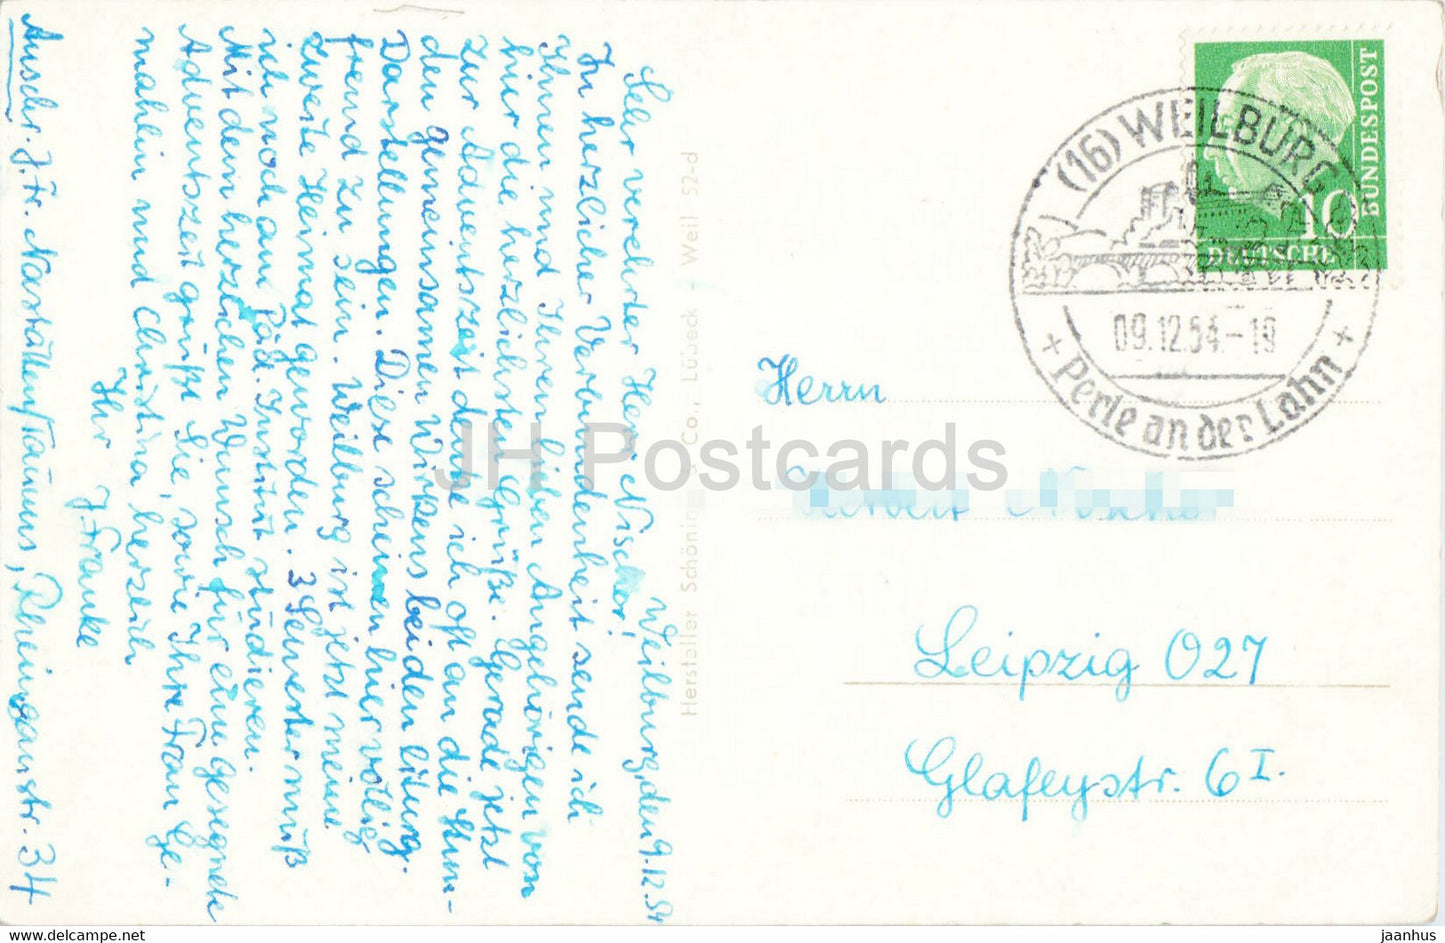 Weilburg, den 9.12.54
Sehr verehrter Herr
In herzlicher Verbundenheit sende ich
Ihnen und Ihren lieben Angehörigen von
hier die herzlichsten Grüße. Gerade jetzt
zur Adventszeit denke ich oft an die Stun-
den gemeinsamen Wirkens beiden
Darstellungen. Diese scheinen hier völlig
fremd zu sein. Weilburg ist jetzt meine
zweite Heimat geworden. 3 Semester muß
ich noch am Päd. Institut studieren.
Mit dem herzlichen Wunsch für eine gesegnete
Adventszeit grüßt Sie, sowie Ihre Frau Ge-
mahlin und Christina, herzlich
Ihr J. Franke
Anschr. J. Fr. Nastätten/Taunus, Rheingaustr. 34
Hersteller Schöning & Co., Lübeck - Weil 52-d
DEUTSCHE
BUNDESPOST
10
(16) WEILBURG
09.12.54.-19
+ Perle an der Lahn +
Herrn
Leipzig O27
Glafeystr. 6 I.
JH Postcards
www.hippostcard.com
jaanhus